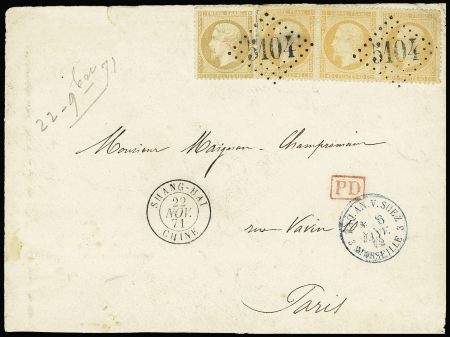 5104 5104
22 - 9bre 71
Monsieur Maignan-Champromain
PD
SHANG-HAI
22
NOV.
71
CHINE
rue Vavin
V. SUEZ
MARSEILLE
Paris